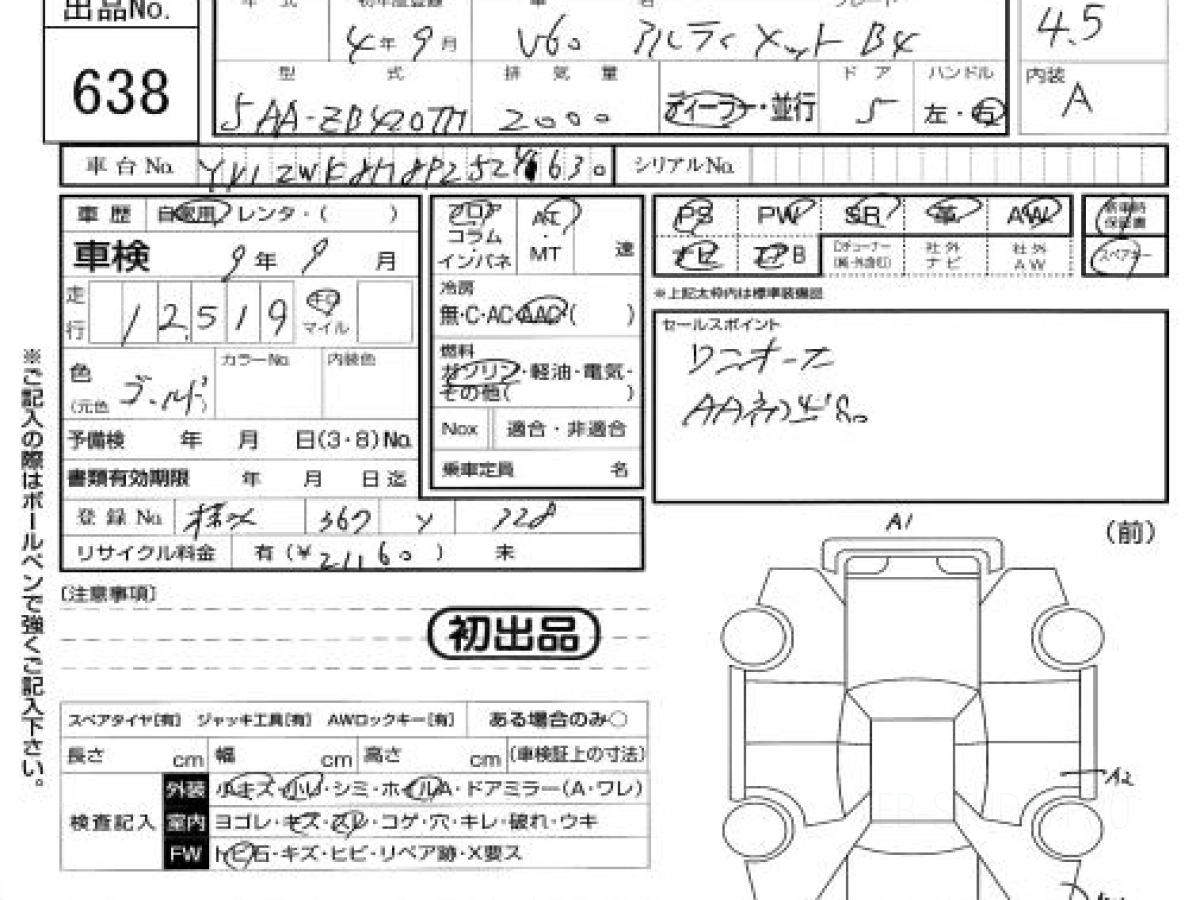 出品No. 年式 初年度登録 車名 グレード 4.5
4年9月 V60 アルティメット B4
638 型式 排気量 ドア ハンドル 内装
5AA-ZB420TM 2000 ディーラー・並行 5 左・右 A
車台No. シリアルNo.
車歴 自家用 レンタ・( ) フロア AT PS PW SR 革 AW 新車時保証書
コラム ・
インパネ MT 速 ナビ エアB □チューナー 社外ナビ 社外AW スペアキー
車検 9年9月
冷房 ※上記太枠内は標準装備図
走行 12,519 km マイル 無・C・AC・AAC( ) セールスポイント
ワンオーナー
色 カラーNo. 内装色 燃料
(元色 ゴールド) ガソリン・軽油・電気・
その他( ) AA初出品
予備検 年 月 日(3・8)No. Nox 適合・非適合
書類有効期限 年 月 日迄 乗車定員 名
登録No. 367 328
リサイクル料金 有(¥21160) 未
A1 (前)
[注意事項]
初出品
※ご記入の際はボールペンで強くご記入下さい。
スペアタイヤ[有] ジャッキ工具[有] AWロックキー[有] ある場合のみ○
長さ cm 幅 cm 高さ cm (車検証上の寸法)
検査記入 外装 小Aキズ・小U・シミ・ホイルA・ドアミラー(A・ワレ)
室内 ヨゴレ・キズ・スレ・コゲ・穴・キレ・破れ・ウキ
FW トビ石・キズ・ヒビ・リペア跡・X要ス
A2